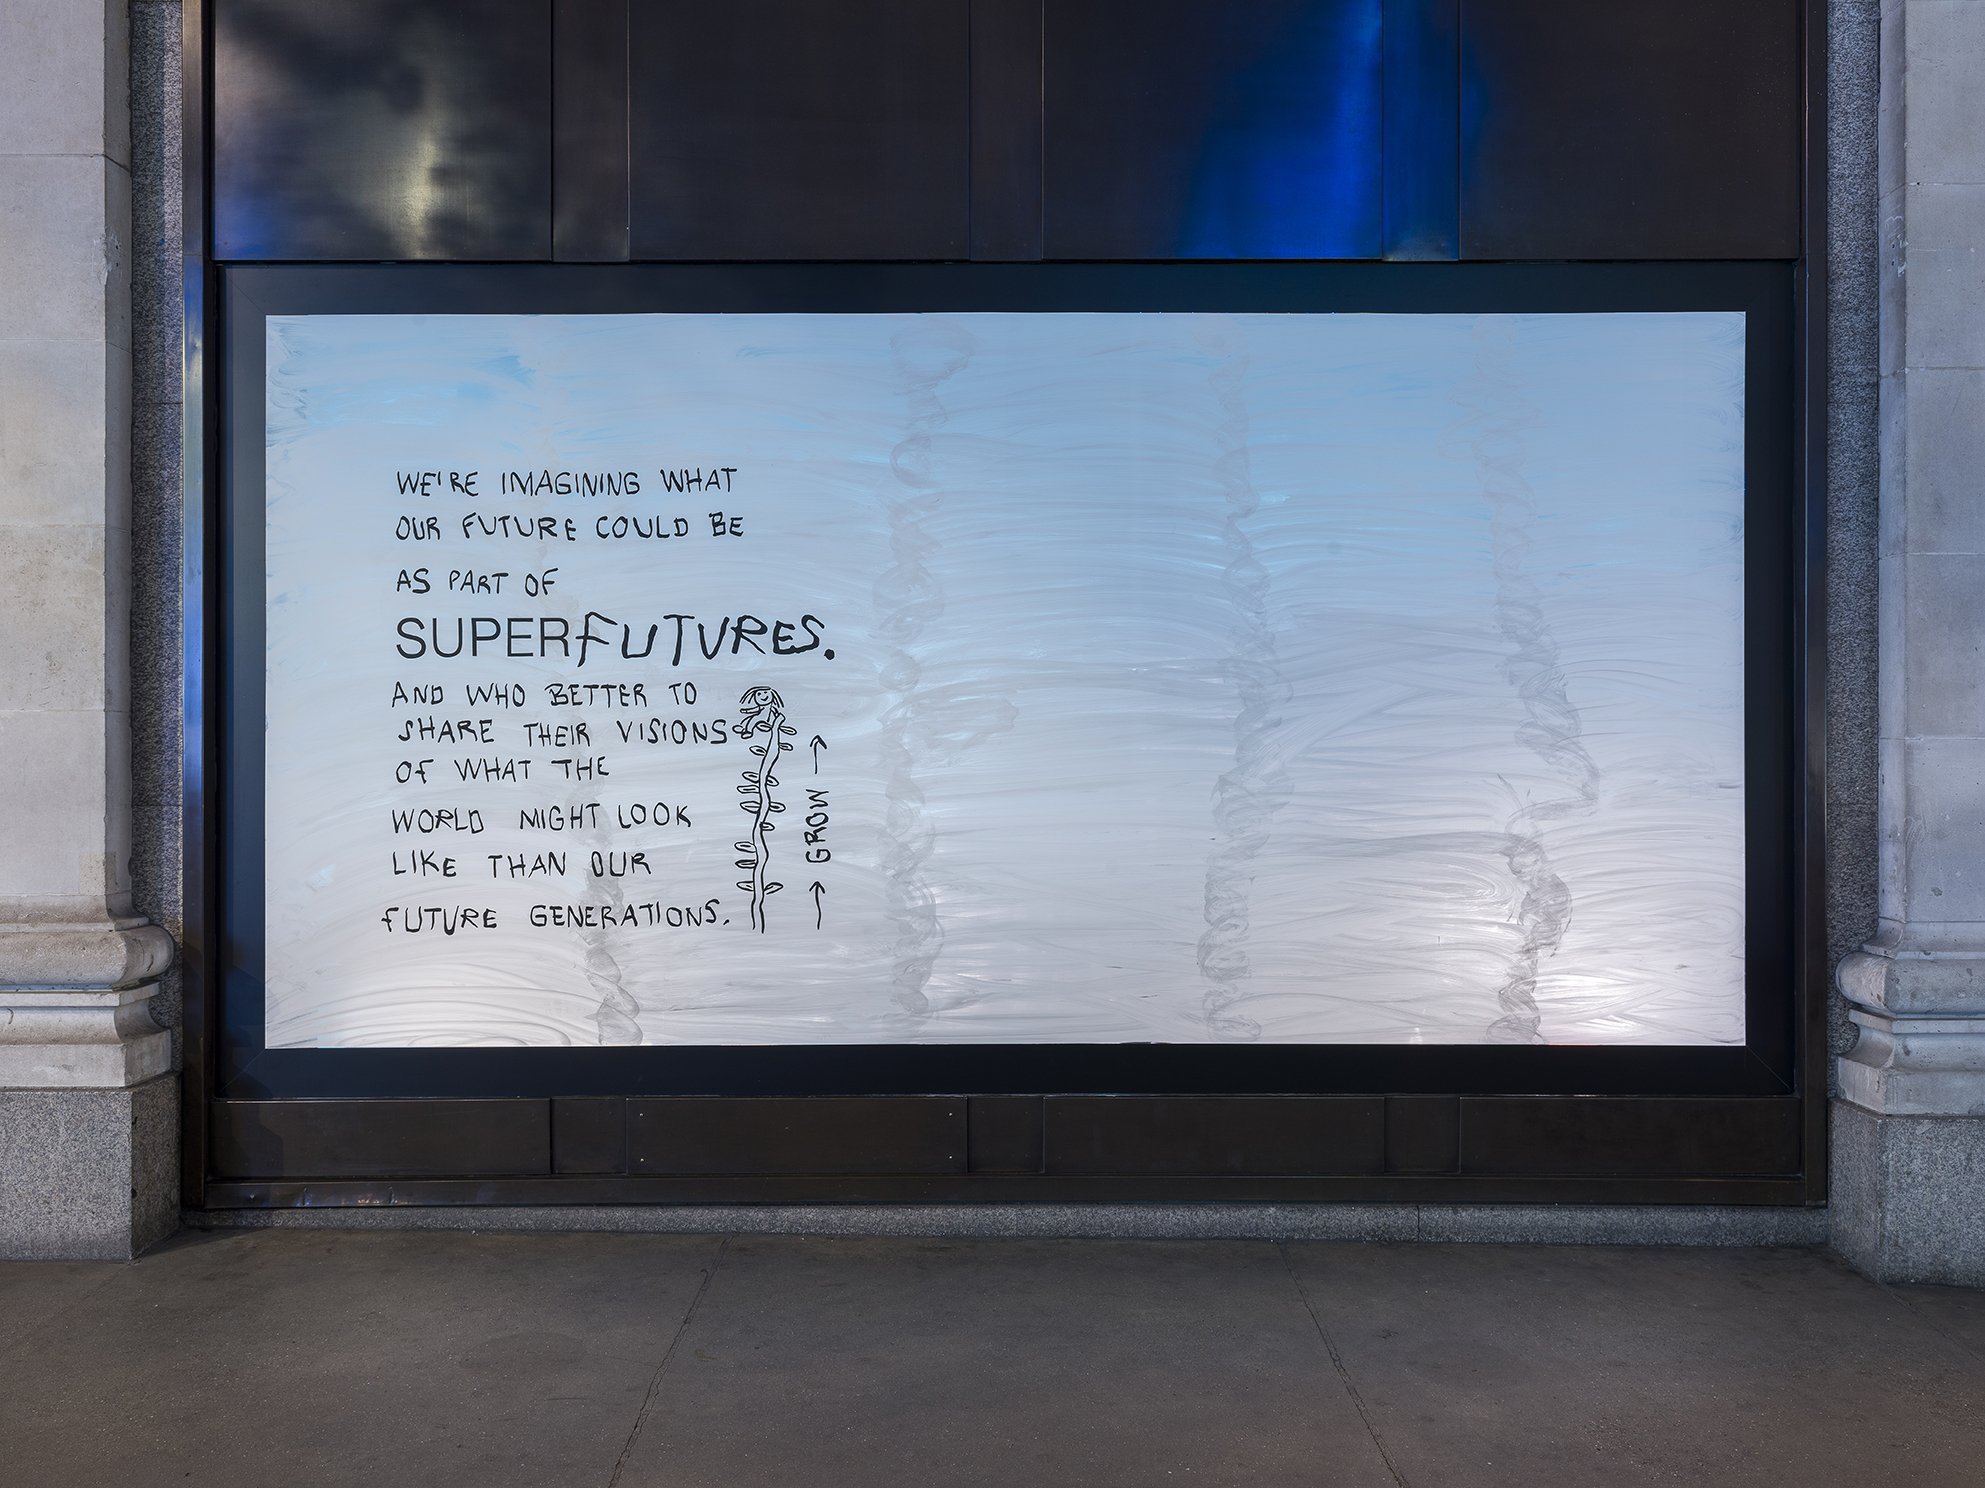 WE'RE IMAGINING WHAT
OUR FUTURE COULD BE
AS PART OF
SUPERFUTURES.
AND WHO BETTER TO
SHARE THEIR VISIONS
OF WHAT THE
WORLD MIGHT LOOK
LIKE THAN OUR
FUTURE GENERATIONS.
→ GROW →